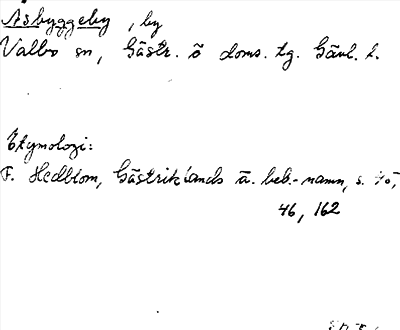 Åsbyggeby, by
Valbo sn, Gästr. ö doms. tg. Gävl. l.
Etymologi:
F. Hedblom, Gästriklands ä. beb.-namn, s. 45,
46, 162